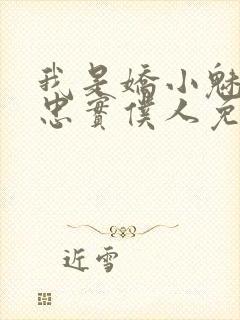 我是嬌小魅
忠實僕人免
近雪